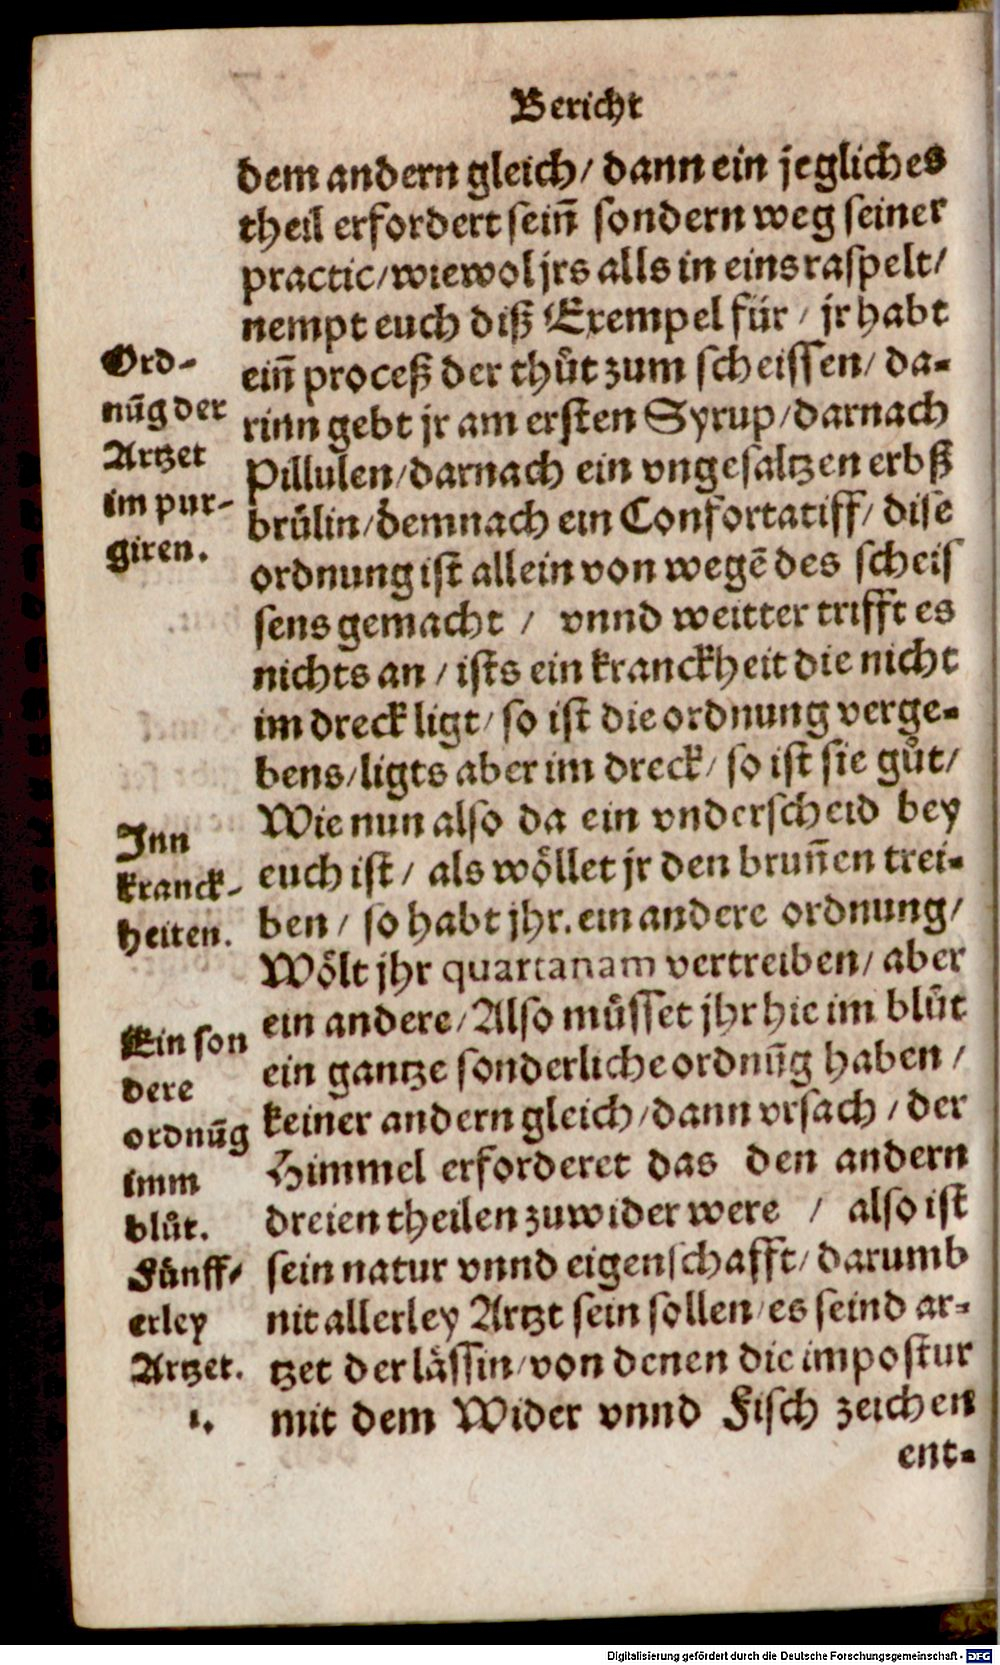 Bericht
dem andern gleich/ dann ein jegliches
theil erfordert sein̄ sondern weg seiner
practic/wiewol jrs alls in eins raspelt/
nempt euch diß Exempel für / jr habt
ein̄ proceß der thůt zum scheissen/ da-
rinn gebt jr am ersten Syrup/darnach
Pillulen/darnach ein vngesaltzen erbß
brülin/demnach ein Confortatiff/ dise
ordnung ist allein von wegē des scheis
sens gemacht / vnnd weitter trifft es
nichts an / ists ein kranckheit die nicht
im dreck ligt/ so ist die ordnung verge-
bens/ligts aber im dreck/ so ist sie gůt/
Wie nun also da ein vnderscheid bey
euch ist / als wöllet jr den brun̄en trei-
ben / so habt jhr. ein andere ordnung/
Wölt jhr quartanam vertreiben/ aber
ein andere/Also müsset jhr hie im blůt
ein gantze sonderliche ordnūg haben /
keiner andern gleich/dann vrsach / der
Himmel erforderet das den andern
dreien theilen zuwider were / also ist
sein natur vnnd eigenschafft/ darumb
nit allerley Artzt sein sollen/es seind ar-
tzet der lässin/von denen die impostur
mit dem Wider vnnd Fisch zeichen
ent-
Ord-
nūg der
Artzet
im pur-
giren.
Inn
kranck-
heiten.
Ein son
dere
ordnūg
imm
blůt.
Fünff-
erley
Artzet.
1.
Digitalisierung gefördert durch die Deutsche Forschungsgemeinschaft - DFG